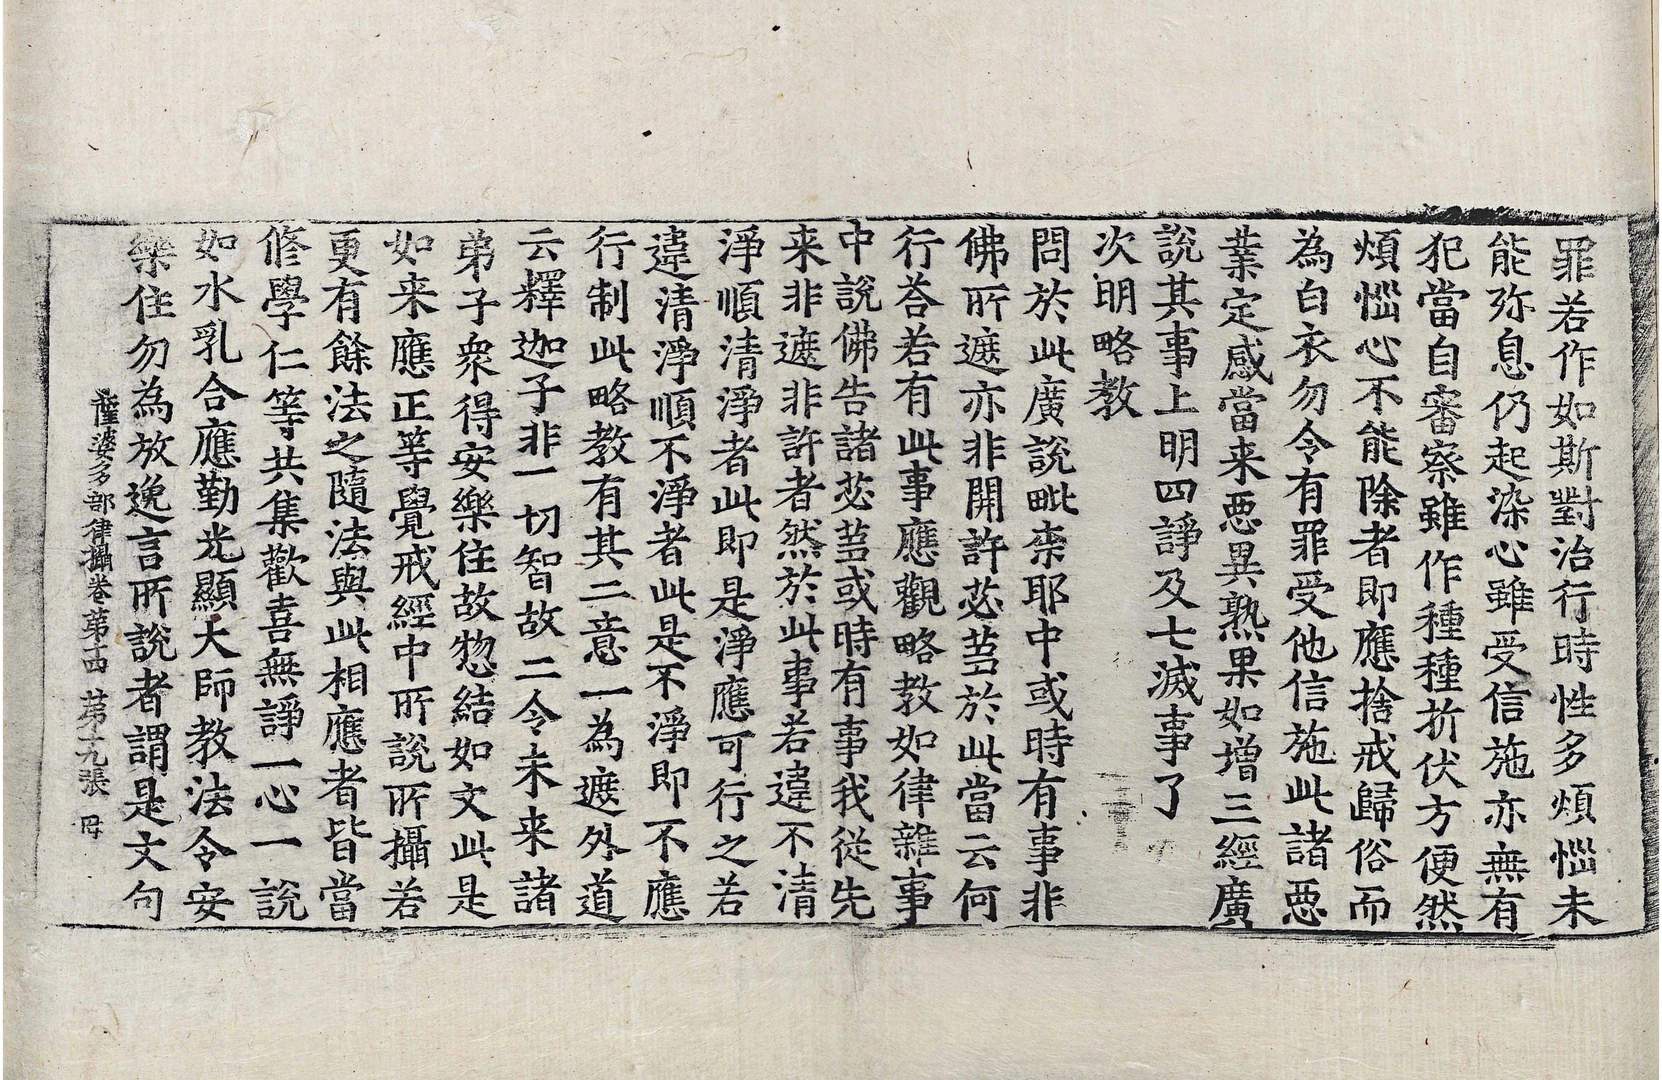 罪若作如斯對治行時性多煩惱未
能弥息仍起染心雖受信施亦無有
犯當自審察雖作種種折伏方便然
煩惱心不能除者即應捨戒歸俗而
為白衣勿令有罪受他信施此諸惡
業定感當来惡異熟果如增三經廣
說其事上明四諍及七滅事了
次明略教
問於此廣說毗柰耶中或時有事非
佛所遮亦非開許苾蒭於此當云何
行荅若有此事應觀略教如律雜事
中說佛告諸苾蒭或時有事我從先
来非遮非許者然於此事若違不清
淨順清淨者此即是淨應可行之若
違清淨順不淨者此是不淨即不應
行制此略教有其二意一為遮外道
云釋迦子非一切智故二令未来諸
弟子衆得安樂住故惣結如文此是
如来應正等覺戒經中所說所攝若
更有餘法之隨法與此相應者皆當
修學仁等共集歡喜無諍一心一說
如水乳合應勤光顯大師教法令安
樂住勿為放逸言所說者謂是文句
薩婆多部律攝卷第十四 第十九張 冊